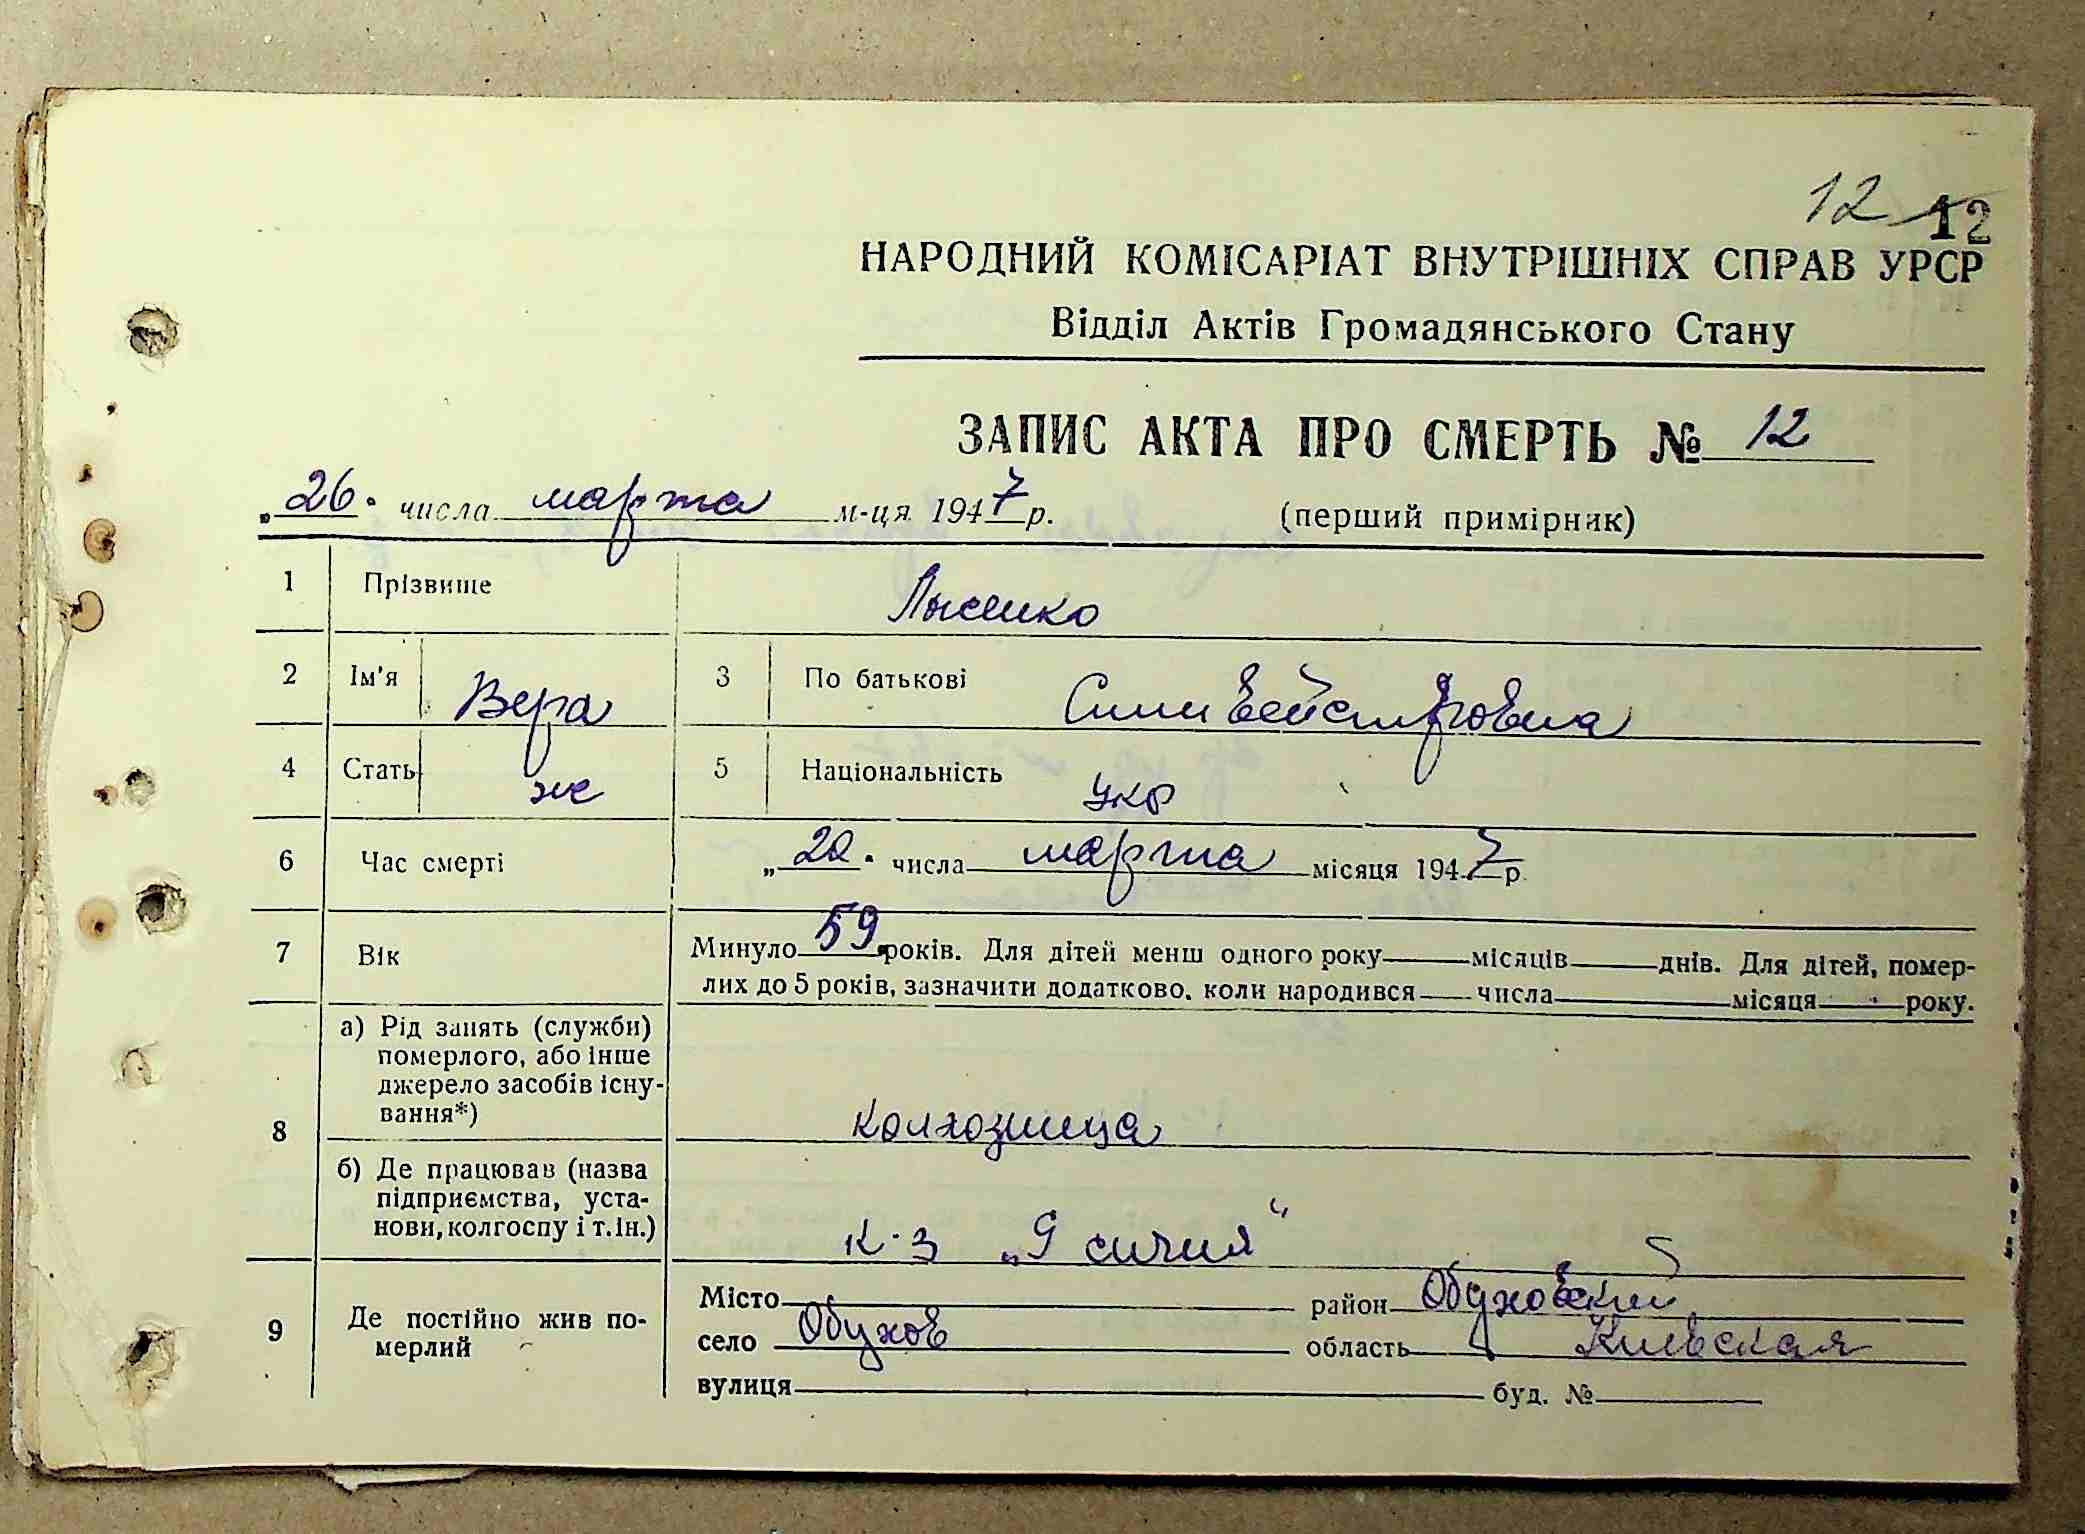 12 12
НАРОДНИЙ КОМІСАРІАТ ВНУТРІШНІХ СПРАВ УРСР
Відділ Актів Громадянського Стану
ЗАПИС АКТА ПРО СМЕРТЬ № 12
„26" числа марта м-ця 1947 р. (перший примірник)
1 Прізвище Лысенко
2 Ім'я Вера 3 По батькові
4 Стать ж 5 Національність укр
6 Час смерті „20" числа марта місяця 1947 р.
7 Вік Минуло 59 років. Для дітей менш одного року місяців днів. Для дітей, помер-
лих до 5 років, зазначити додатково, коли народився числа місяця року.
8 а) Рід занять (служби)
померлого, або інше
джерело засобів існу-
вання*) колхозница
б) Де працював (назва
підприємства, уста-
нови, колгоспу і т. ін.) к-з „9 сичня"
9 Де постійно жив по-
мерлий
Місто район Обуховский
село Обухов область Киевская
вулиця буд. №